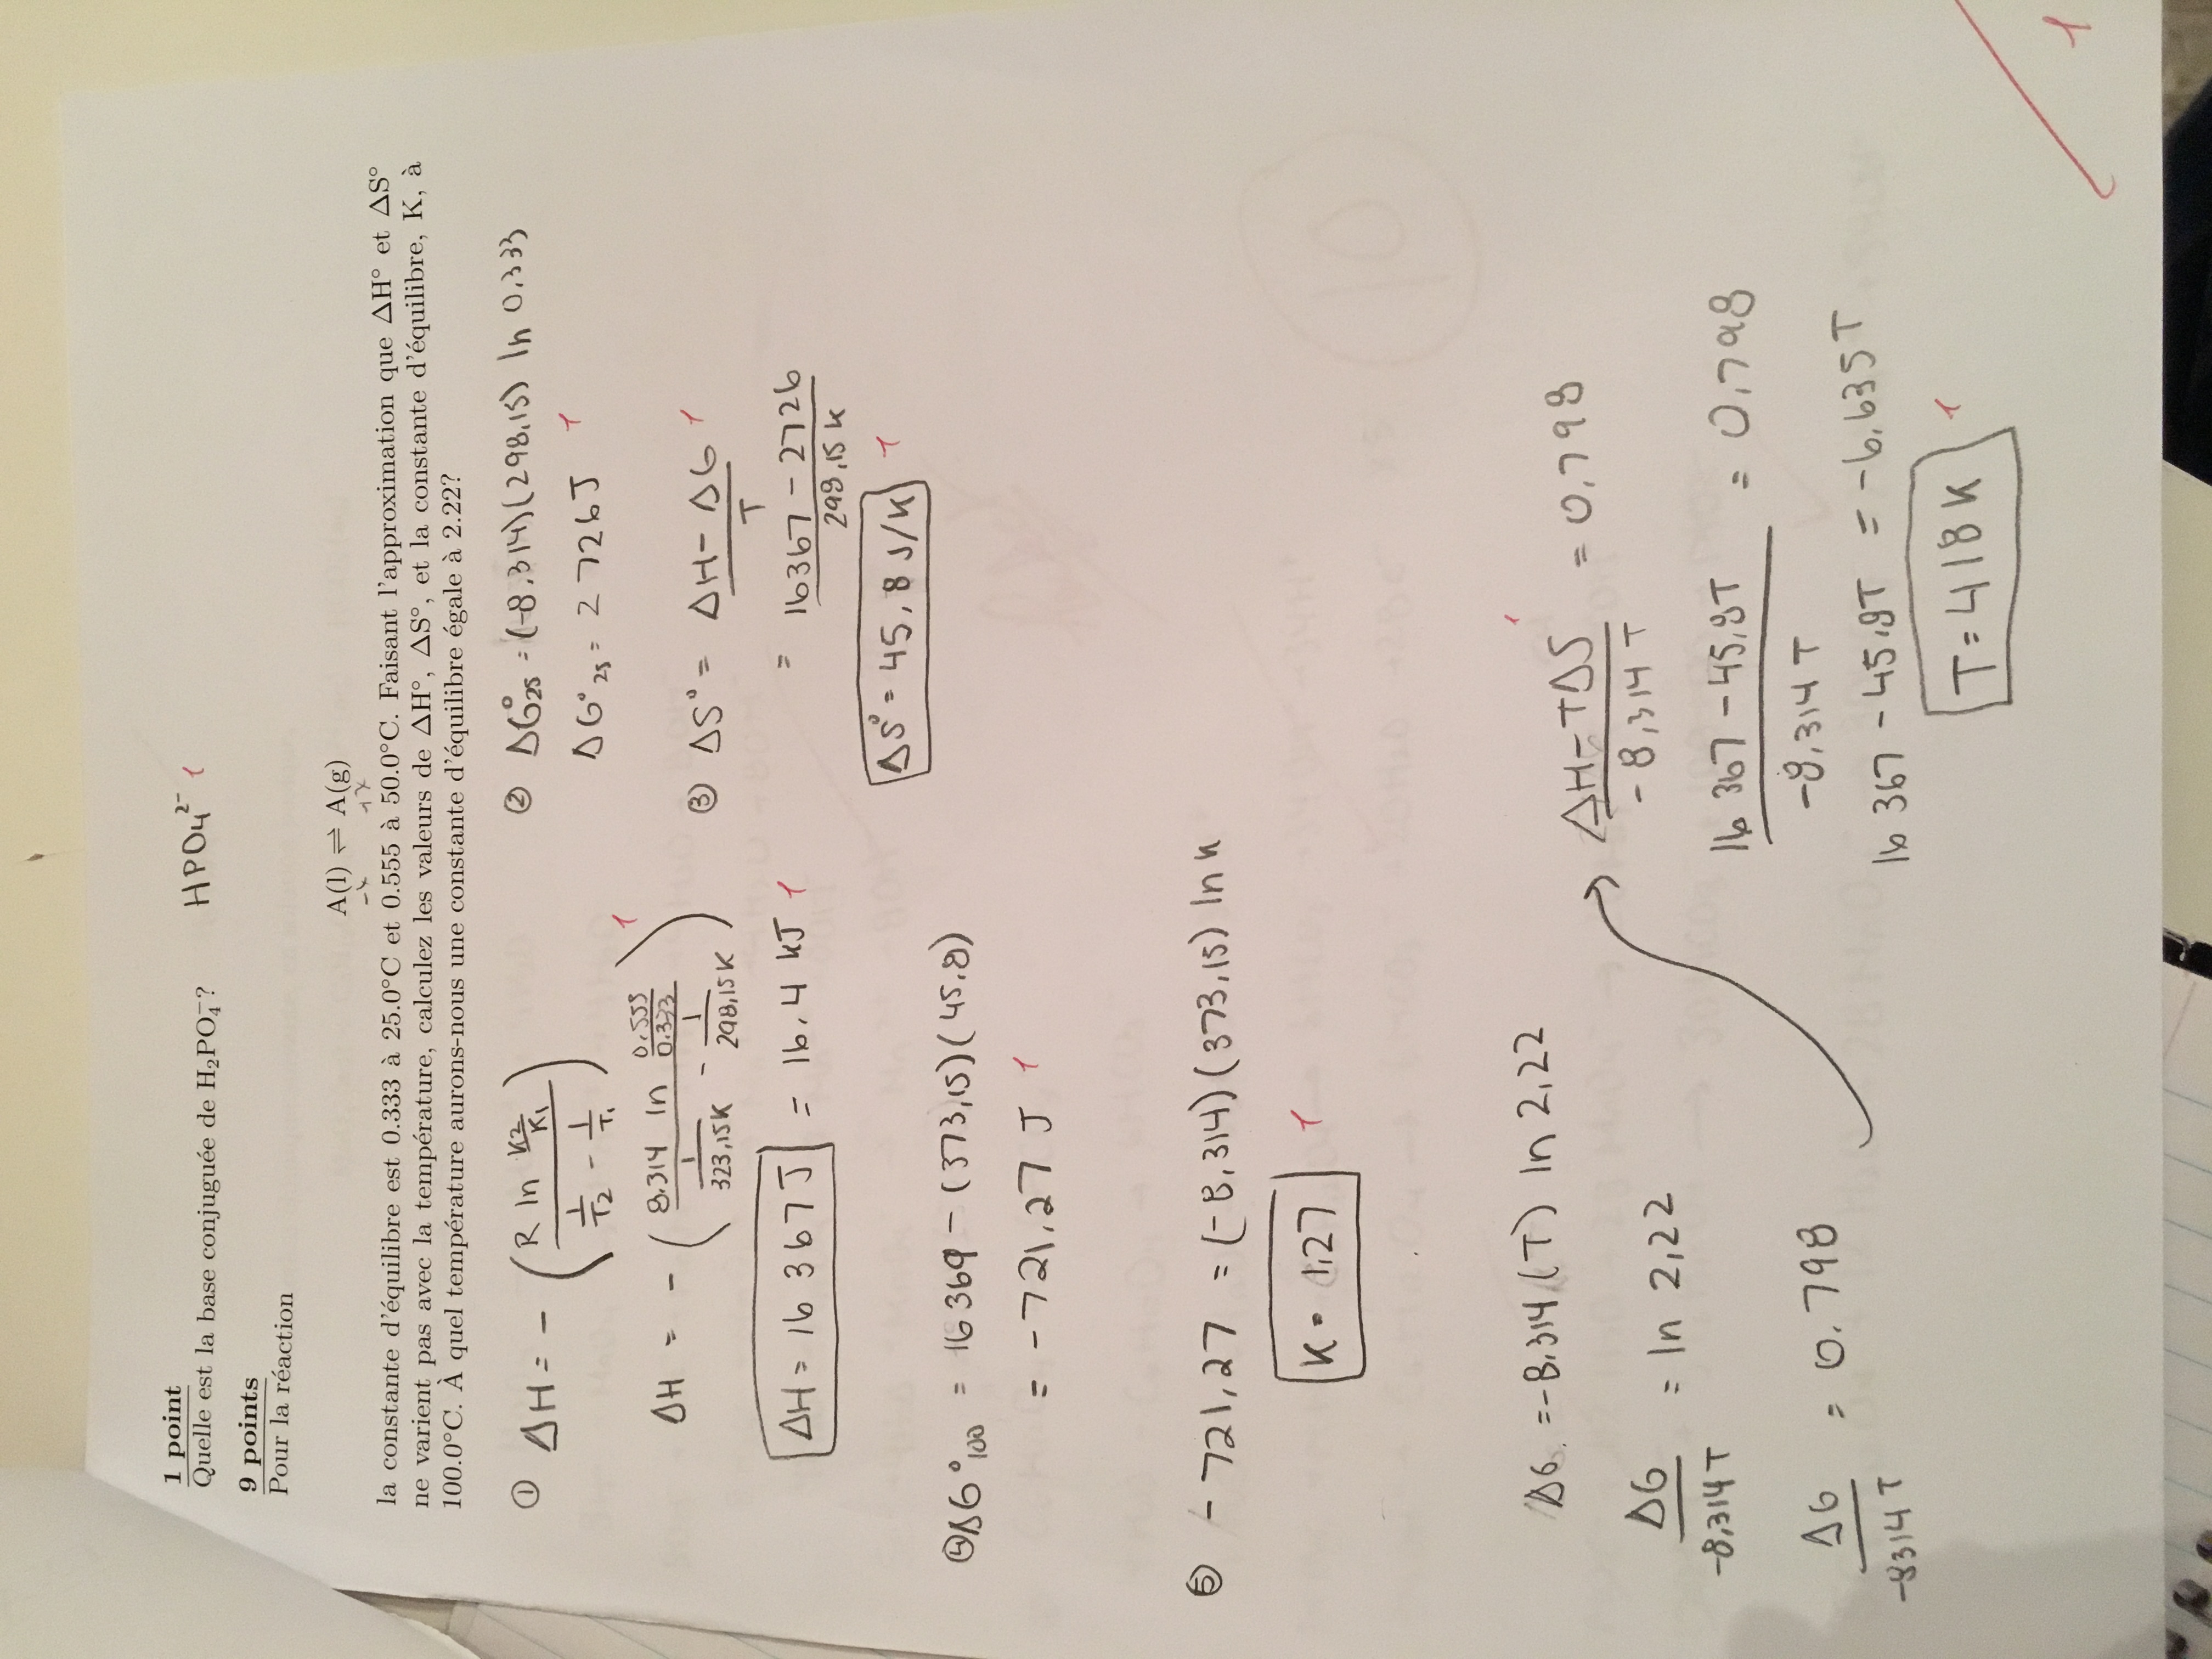 1 point
Quelle est la base conjuguée de H₂PO₄⁻? HPO₄²⁻ 1
9 points
Pour la réaction
A(l) ⇌ A(g)
-x +x
la constante d'équilibre est 0.333 à 25.0°C et 0.555 à 50.0°C. Faisant l'approximation que ΔH° et ΔS°
ne varient pas avec la température, calculez les valeurs de ΔH°, ΔS°, et la constante d'équilibre, K, à
100.0°C. À quel température aurons-nous une constante d'équilibre égale à 2.22?
① ΔH = - (R ln K2/K1 / (1/T2 - 1/T1))
ΔH = - (8.314 ln 0.555/0.333 / (1/323,15K - 1/298,15K)) 1
ΔH = 16 367 J = 16,4 kJ 1
② ΔG°25 = (-8,314)(298,15) ln 0,333
ΔG°25 = 2 726J 1
③ ΔS° = ΔH - ΔG / T 1
= 16367 - 2726 / 298,15 K
ΔS° = 45,8 J/K 1
④ ΔG°100 = 16369 - (373,15)(45,8)
= -721,27 J 1
⑤ -721,27 = (-8,314)(373,15) ln K
K = 1,27 1
ΔG = -8,314(T) ln 2,22
ΔG / -8,314T = ln 2,22
ΔG / -8314T = 0.798
ΔH - TΔS / -8,314T = 0,798 1
16 367 - 45,8T / -8,314T = 0,798
16 367 - 45,8T = -6,635T
T = 418K 1
1